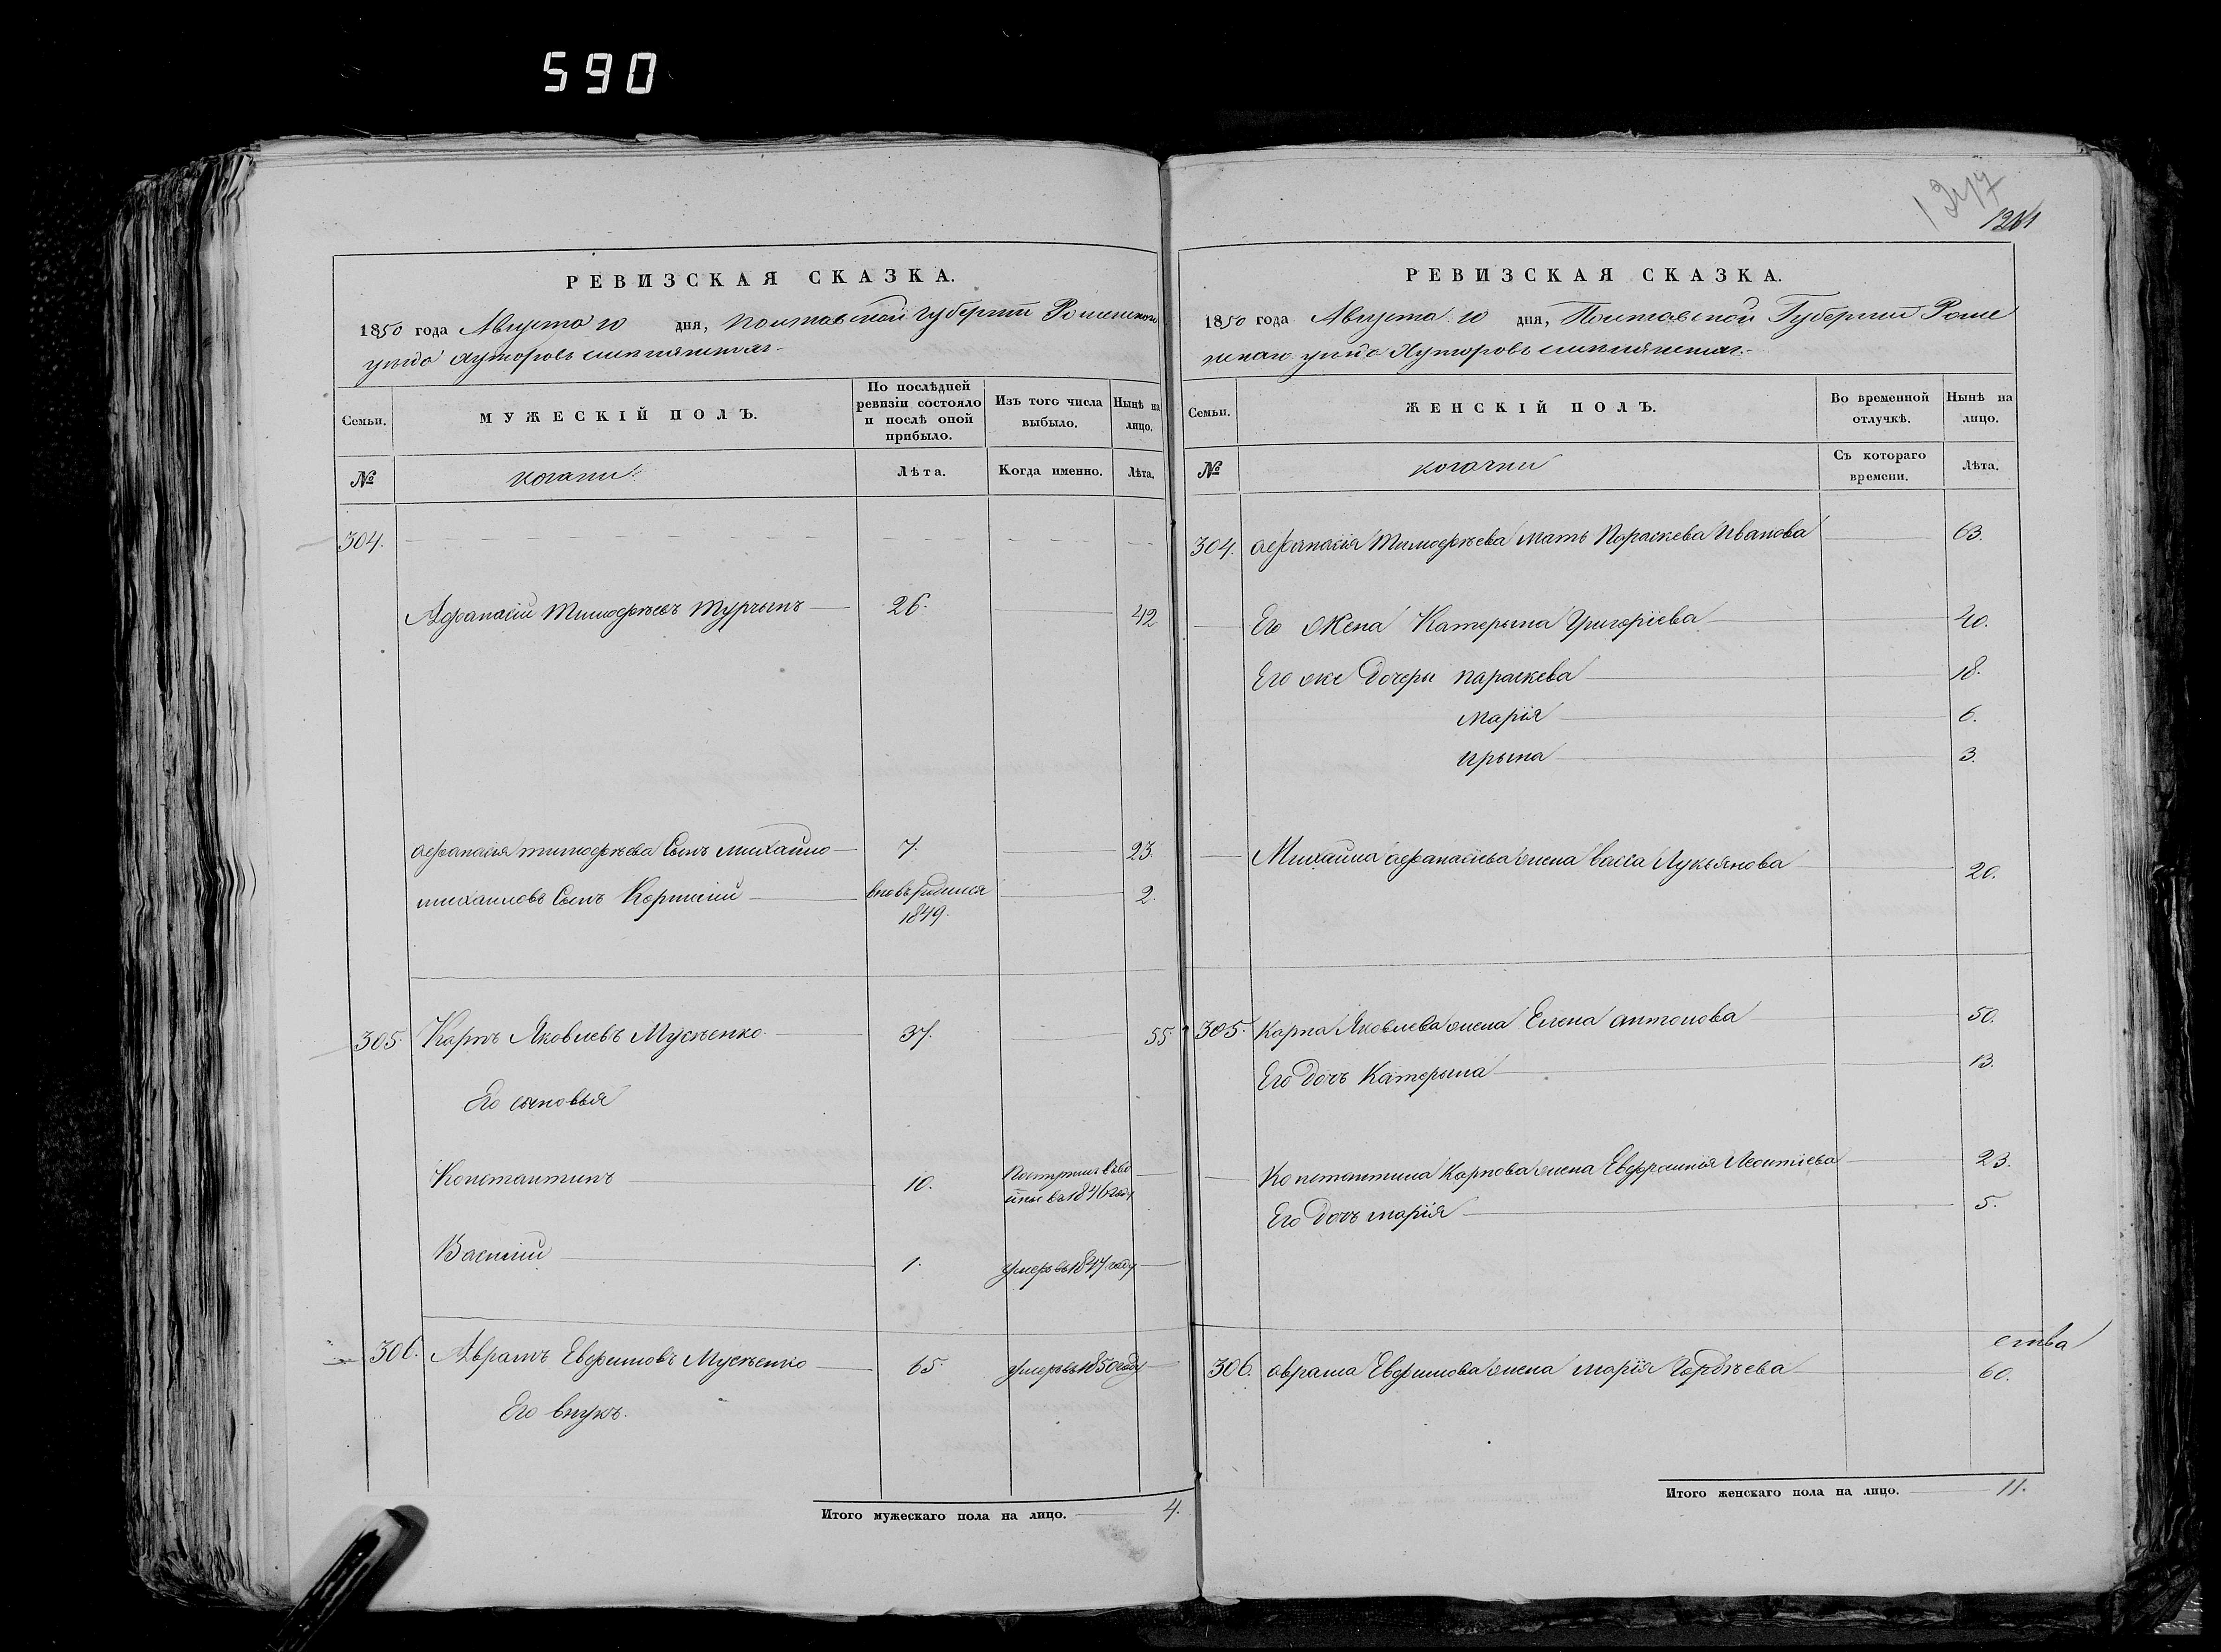 590
1247
1261
РЕВИЗСКАЯ СКАЗКА.
1850 года Августа 10 дня, Полтавской Губернии Роменского
уезда Хуторовъ
Семьи.
МУЖЕСКІЙ ПОЛЪ.
По послѣдней ревизіи состояло и послѣ оной прибыло.
Изъ того числа выбыло.
Нынѣ на лицо.
№
козаки
Лѣта.
Когда именно.
Лѣта.
304.
Афанасій Тимофѣевъ Турчынъ 26. 42
афанасія тимофѣева Сынъ михайло 7. 23.
михаиловъ Сынъ вновь родился 2.
1849.
305. Карпъ Яковлевъ Мусѣенко 37. 55
Его сыновья
Константинъ 10.
въ 1846 году
Василій 1. умеръ въ 1847 году
306. Аврамъ Евфимовъ Мусѣенко 65. умеръ въ 1850 году
Его внукъ.
Итого мужескаго пола на лицо. 4.
РЕВИЗСКАЯ СКАЗКА.
1850 года Августа 10 дня, Полтавской Губернии Роме
нскаго уезда Хуторовъ
Семьи.
ЖЕНСКІЙ ПОЛЪ.
Во временной отлучкѣ.
Нынѣ на лицо.
№
козачки
Съ котораго времени.
Лѣта.
304. афанасія Тимофѣева мать Параскева Иванова 63.
Его Жена Катерына Григоріева 40.
Его же Дочери параскева 18.
Марія 6.
Ирына 3.
Михайла афанасіева жена Васса Лукьянова 20.
305. Карпа Яковлева жена Елена антонова 50.
Его дочь Катерына 13.
Константина Карпова жена Евфросинія Леонтіева 23.
Его дочь марія 5.
ства
306. аврама Евфимова жена марія Гордѣева 60.
Итого женскаго пола на лицо. 11.